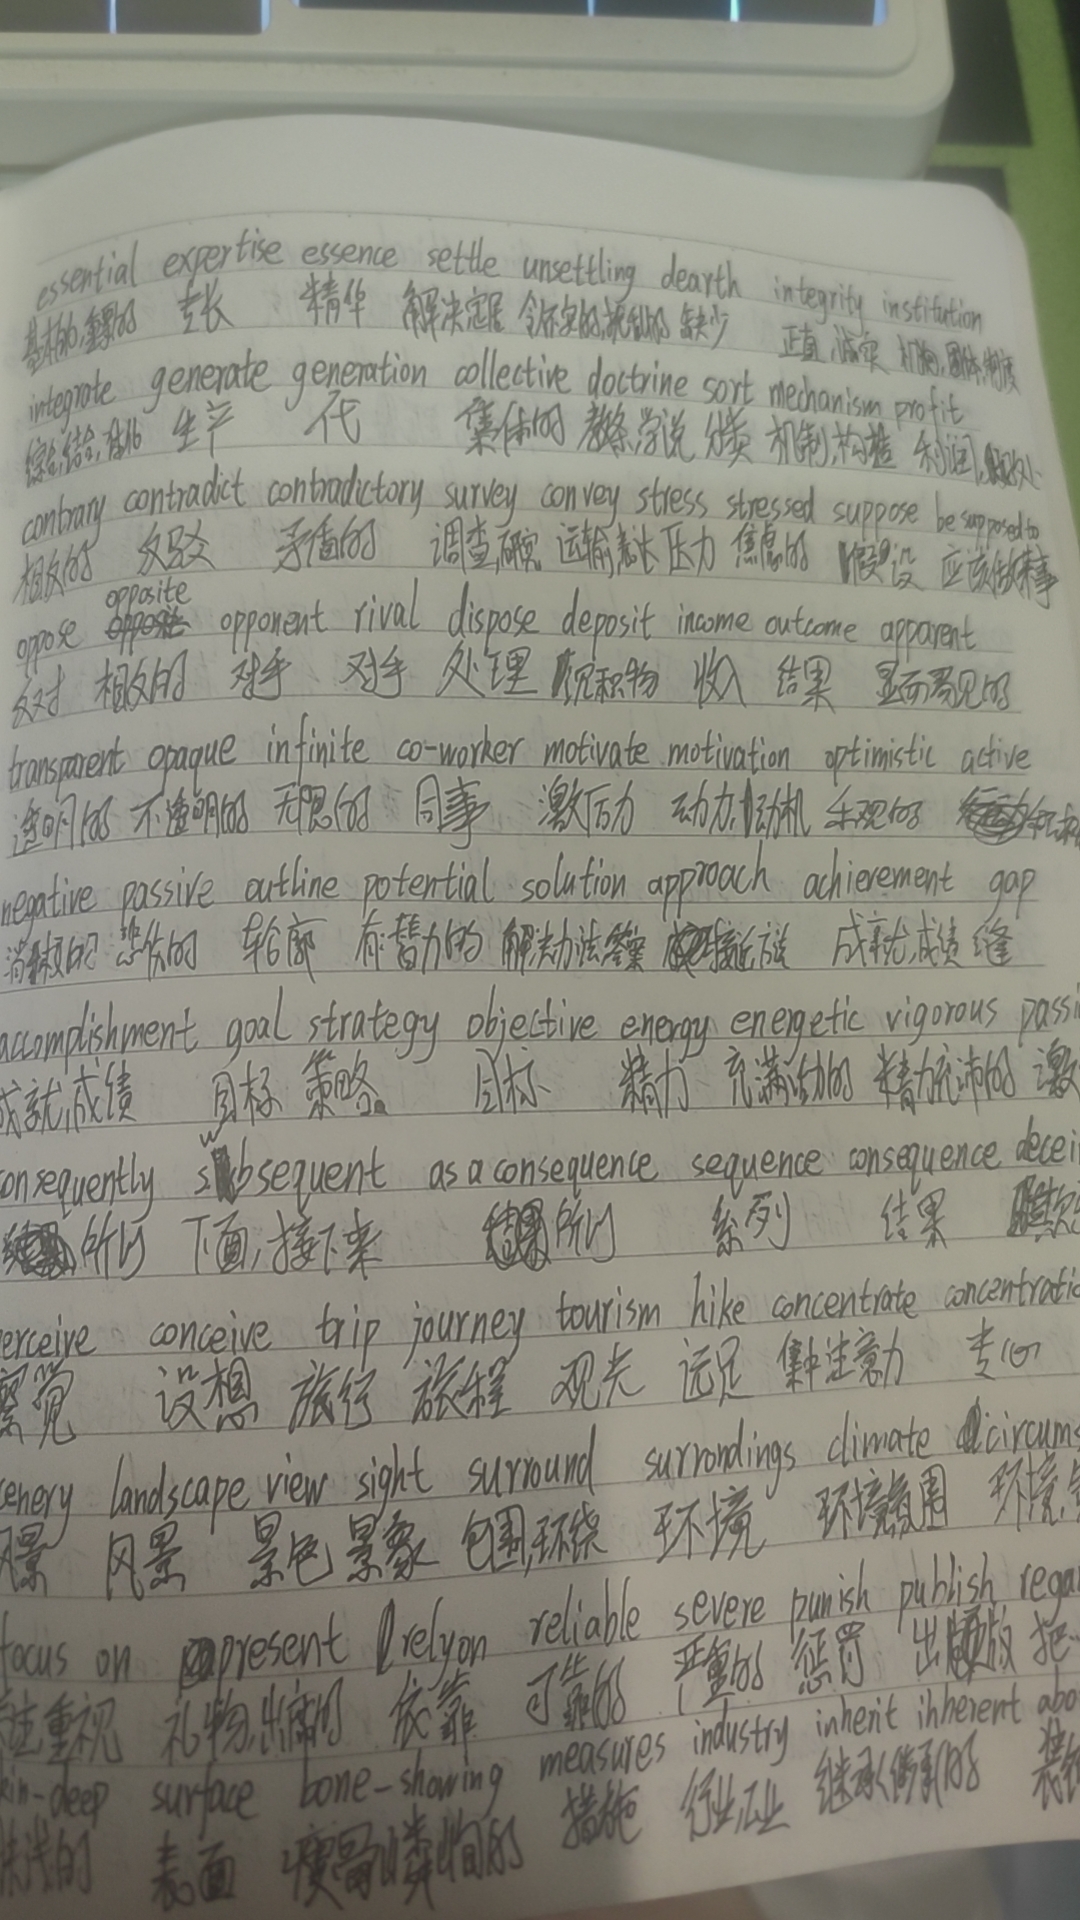 essential expertise essence settle unsettling dearth integrity institution
基本的,重要的 专长 精华 解决,定居 令不安的,扰乱的 缺少 正直,诚实 机构,团体,制度
integrate generate generation collective doctrine sort mechanism profit
综合,结合 生产 代 集体的 教条,学说 分类 机制,构造 利润
contrary contradict contradictory survey convey stress stressed suppose be supposed to
相反的 反驳 矛盾的 调查,研究 运输,表达 压力 焦虑的 假设 应该做某事
opposite
oppose opponent rival dispose deposit income outcome apparent
反对 相反的 对手 对手 处理 沉积物 收入 结果 显而易见的
transparent opaque infinite co-worker motivate motivation optimistic active
透明的 不透明的 无限的 同事 激励 动力,动机 乐观的
negative passive outline potential solution approach achievement gap
消极的 悲伤的 轮廓 有潜力的 解决办法,答案 接近,方法 成就,成绩 缝
accomplishment goal strategy objective energy energetic vigorous passi
成就,成绩 目标 策略 目标 精力 充满活力的 精力充沛的 激
onsequently subsequent as a consequence sequence consequence decei
所以 下面,接下来 所以 系列 结果 欺
erceive conceive trip journey tourism hike concentrate concentratio
察觉 设想 旅行 旅程 观光 远足 集中注意力 专心
enery landscape view sight surround surrondings climate circums
风景 风景 景色 景象 包围,环绕 环境 环境,氛围 环境,
focus on present rely on reliable severe punish publish regar
注重视 礼物,出席的 依靠 可靠的 严重的 惩罚 出版 把
kin-deep surface bone-showing measures industry inherit inherent abo
肤浅的 表面 瘦骨嶙峋的 措施 行业,工业 继承